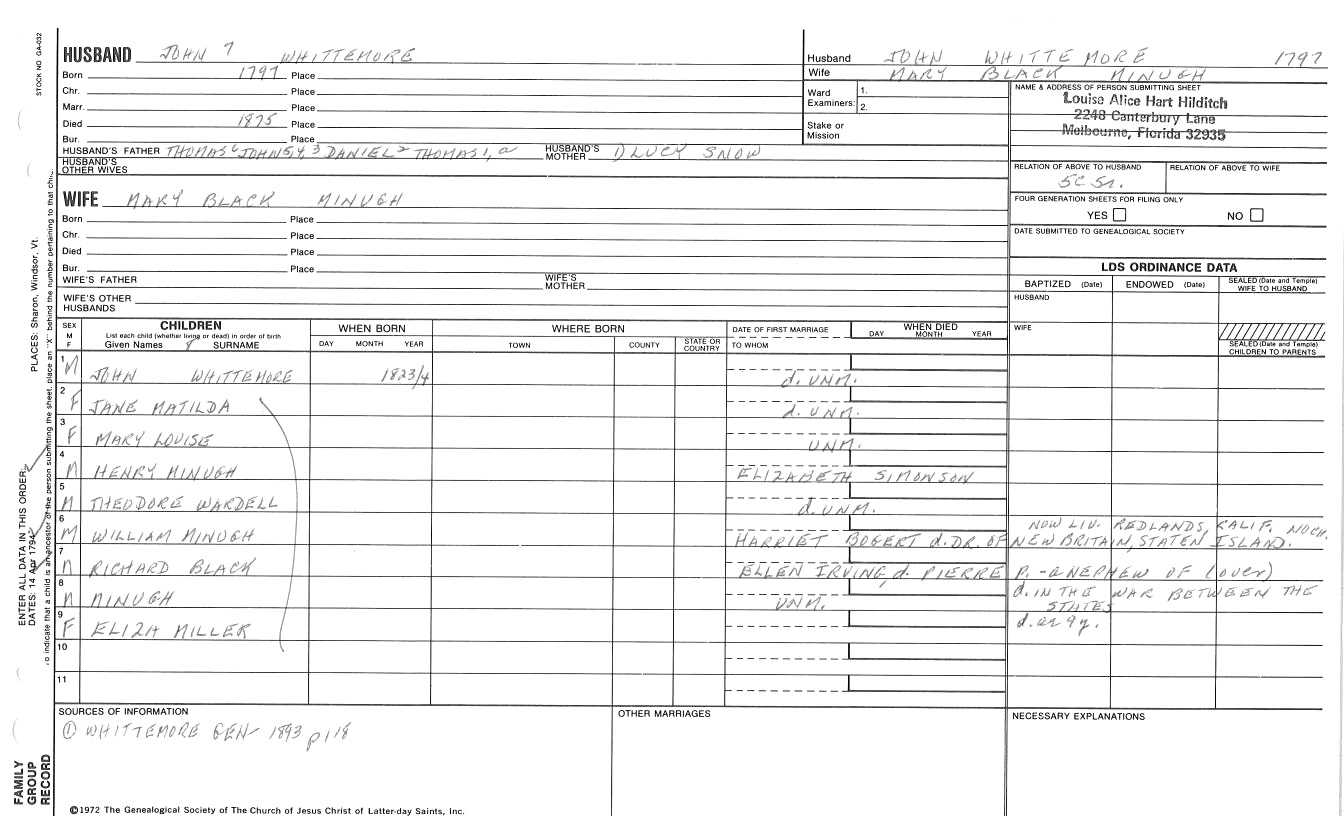 STOCK NO GA-032
HUSBAND JOHN 7 WHITTEMORE
Born 1797 Place
Chr. Place
Marr. Place
Died 1875 Place
Bur. Place
HUSBAND'S FATHER THOMAS 6 JOHN 5, 4, 3 DANIEL 2 THOMAS 1, a HUSBAND'S MOTHER LUCY SNOW
HUSBAND'S OTHER WIVES
Husband JOHN WHITTEMORE 1797
Wife MARY BLACK MINUGH
Ward Examiners: 1.
2.
Stake or Mission
NAME & ADDRESS OF PERSON SUBMITTING SHEET
Louise Alice Hart Hilditch
2248 Canterbury Lane
Melbourne, Florida 32935
RELATION OF ABOVE TO HUSBAND RELATION OF ABOVE TO WIFE
5C 5r.
FOUR GENERATION SHEETS FOR FILING ONLY
YES NO
DATE SUBMITTED TO GENEALOGICAL SOCIETY
WIFE MARY BLACK MINUGH
Born Place
Chr. Place
Died Place
Bur. Place
WIFE'S FATHER WIFE'S MOTHER
WIFE'S OTHER HUSBANDS
LDS ORDINANCE DATA
BAPTIZED (Date) ENDOWED (Date) SEALED (Date and Temple) WIFE TO HUSBAND
HUSBAND
WIFE
SEALED (Date and Temple) CHILDREN TO PARENTS
SEX M F
CHILDREN
List each child (whether living or dead) in order of birth
Given Names 8 SURNAME
WHEN BORN
DAY MONTH YEAR
WHERE BORN
TOWN COUNTY STATE OR COUNTRY
DATE OF FIRST MARRIAGE
TO WHOM
WHEN DIED
DAY MONTH YEAR
1 M JOHN WHITTEMORE 1823/4 d. UNM.
2 F JANE MATILDA d. UNM.
3 F MARY LOUISE UNM.
4 M HENRY MINUGH ELIZABETH SIMONSON
5 M THEODORE WARDELL d. UNM.
6 M WILLIAM MINUGH HARRIET BOGERT d. DR. OF NEW BRITAIN, STATEN ISLAND.
NOW LIV. REDLANDS, CALIF. NOCH.
7 M RICHARD BLACK ELLEN IRVING, d. PIERRE P. - a NEPHEW OF (over)
8 M MINUGH UNM. d. IN THE WAR BETWEEN THE STATES
9 F ELIZA MILLER d. ae 9y.
10
11
SOURCES OF INFORMATION
① WHITTEMORE GEN 1893 p118
OTHER MARRIAGES
NECESSARY EXPLANATIONS
©1972 The Genealogical Society of The Church of Jesus Christ of Latter-day Saints, Inc.
FAMILY GROUP RECORD
ENTER ALL DATA IN THIS ORDER:
DATES: 14 Apr 1794
PLACES: Sharon, Windsor, Vt.
to indicate that a child is an ancestor of the person submitting the sheet, place an "X" behind the number pertaining to that child.